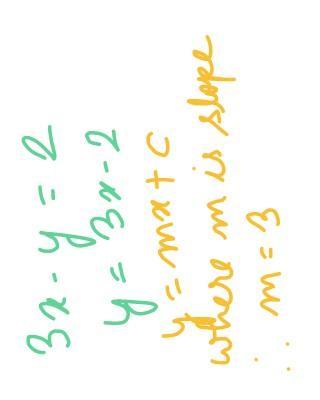 3x - y = 2
y = 3x - 2
y = mx + c
where m is slope
∴ m = 3